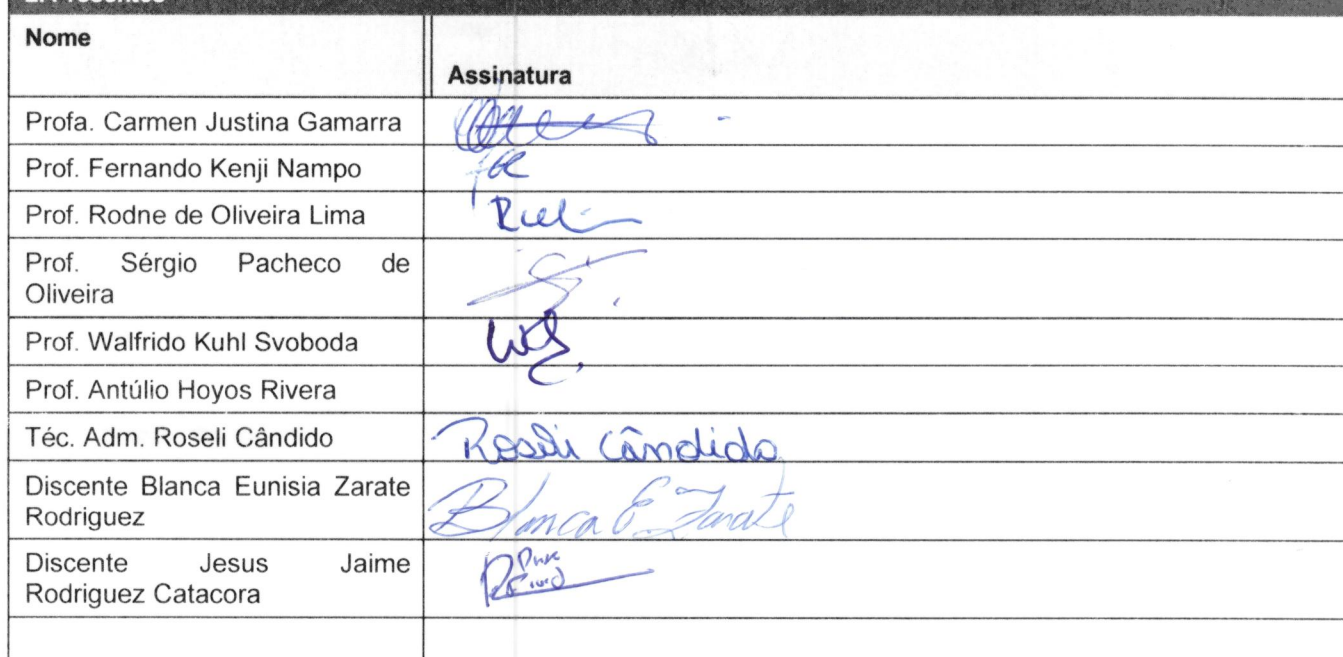 Nome
Assinatura
Profa. Carmen Justina Gamarra
Prof. Fernando Kenji Nampo
Prof. Rodne de Oliveira Lima
Prof. Sérgio Pacheco de
Oliveira
Prof. Walfrido Kuhl Svoboda
Prof. Antúlio Hoyos Rivera
Téc. Adm. Roseli Cândido
Roseli Cândido
Discente Blanca Eunisia Zarate
Rodriguez
Blanca E. Zarate
Discente Jesus Jaime
Rodriguez Catacora